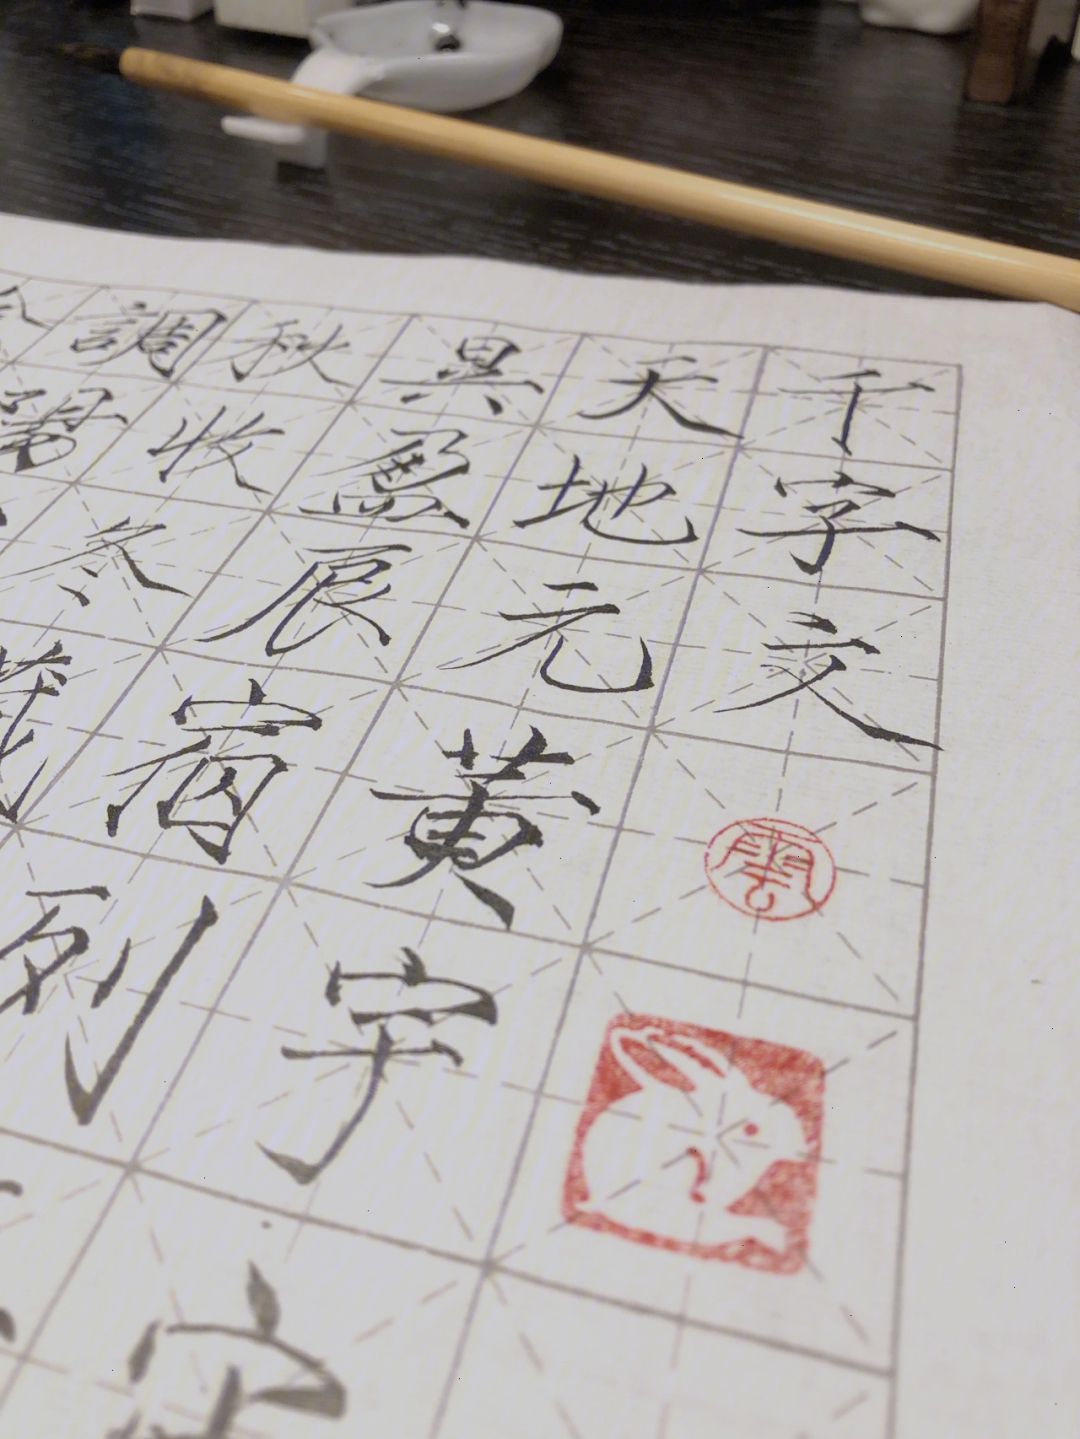 千字文
天地元黄宇
盈辰宿列
秋收冬藏
調